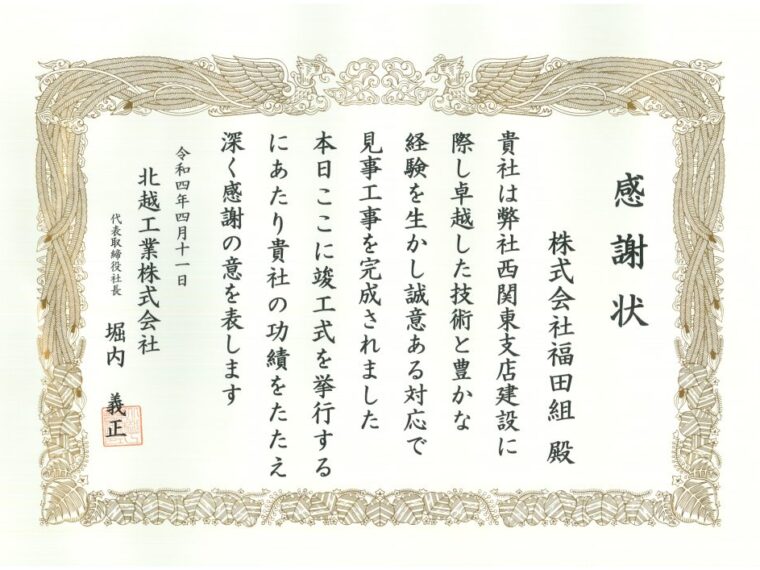 感謝状
株式会社福田組 殿
貴社は弊社西関東支店建設に
際し卓越した技術と豊かな
経験を生かし誠意ある対応で
見事工事を完成されました
本日ここに竣工式を挙行する
にあたり貴社の功績をたたえ
深く感謝の意を表します
令和四年四月十一日
北越工業株式会社
代表取締役社長 堀内 義正